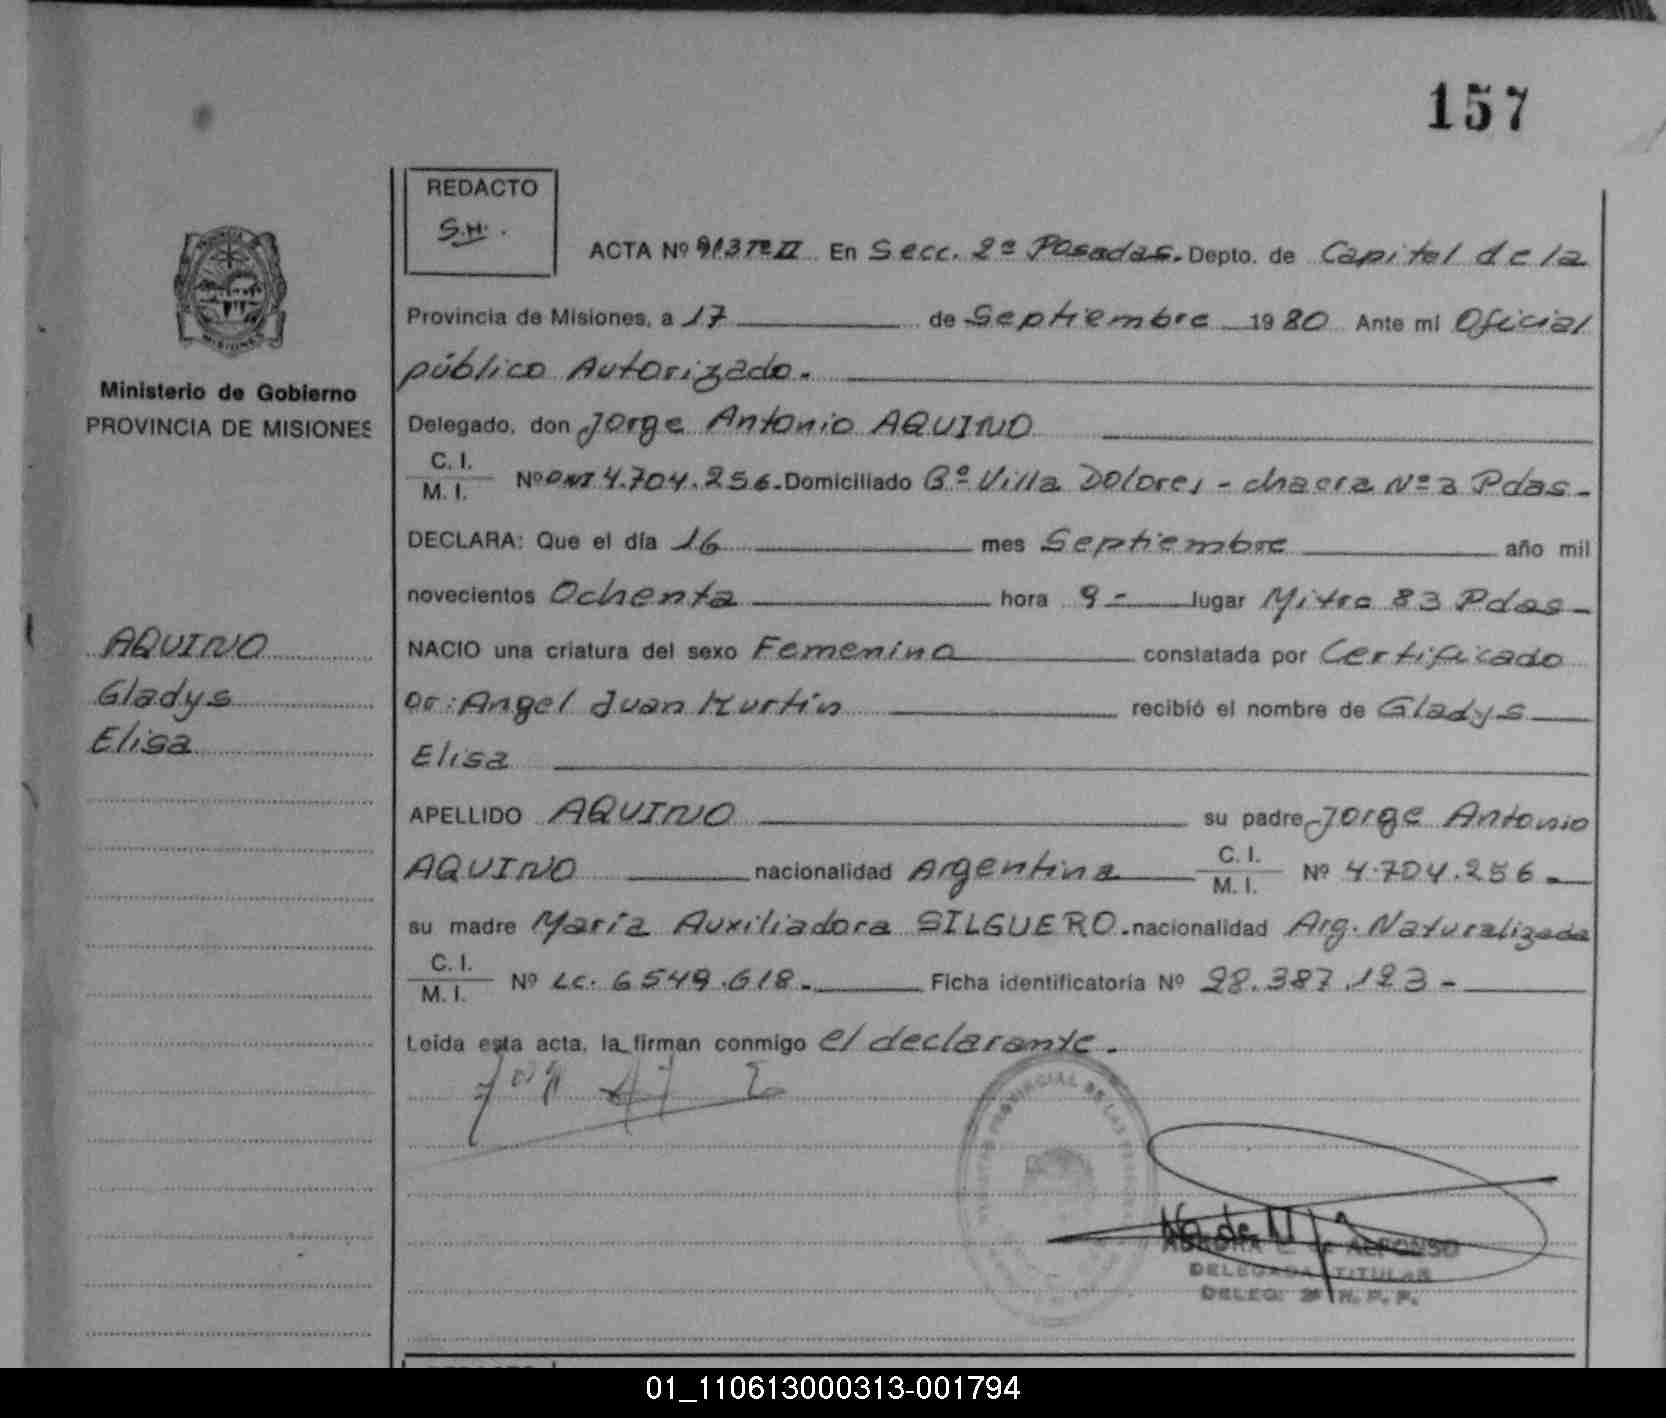 157
REDACTO
S.H.
ACTA Nº 913 Tº II En Secc. 2ª Posadas. Depto. de Capital de la
Provincia de Misiones, a 17 de Septiembre 1980 Ante mi Oficial
público Autorizado.
Ministerio de Gobierno
PROVINCIA DE MISIONES
Delegado, don Jorge Antonio AQUINO
C. I.
M. I. Nº DNI 4.704.256. Domiciliado Bº Villa Dolores - chacra Nº 3 Pdas -
DECLARA: Que el día 16 mes Septiembre año mil
novecientos Ochenta hora 9 - lugar Mitre 83 Pdas -
AQUINO
Gladys
Elisa
NACIO una criatura del sexo Femenino constatada por Certificado
Dr: Angel Juan Kurtin recibió el nombre de Gladys
Elisa
APELLIDO AQUINO su padre Jorge Antonio
AQUINO nacionalidad Argentina C. I. M. I. Nº 4.704.256 -
su madre María Auxiliadora SILGUERO. nacionalidad Arg. Naturalizada
C. I.
M. I. Nº LC. 6549.618 - Ficha identificatoria Nº 28.387.123 -
Leída esta acta, la firman conmigo el declarante.
PROVINCIAL DE LAS
ALFONSO
DELEGADA TITULAR
DELEG. 2ª R. P. P.
01_110613000313-001794